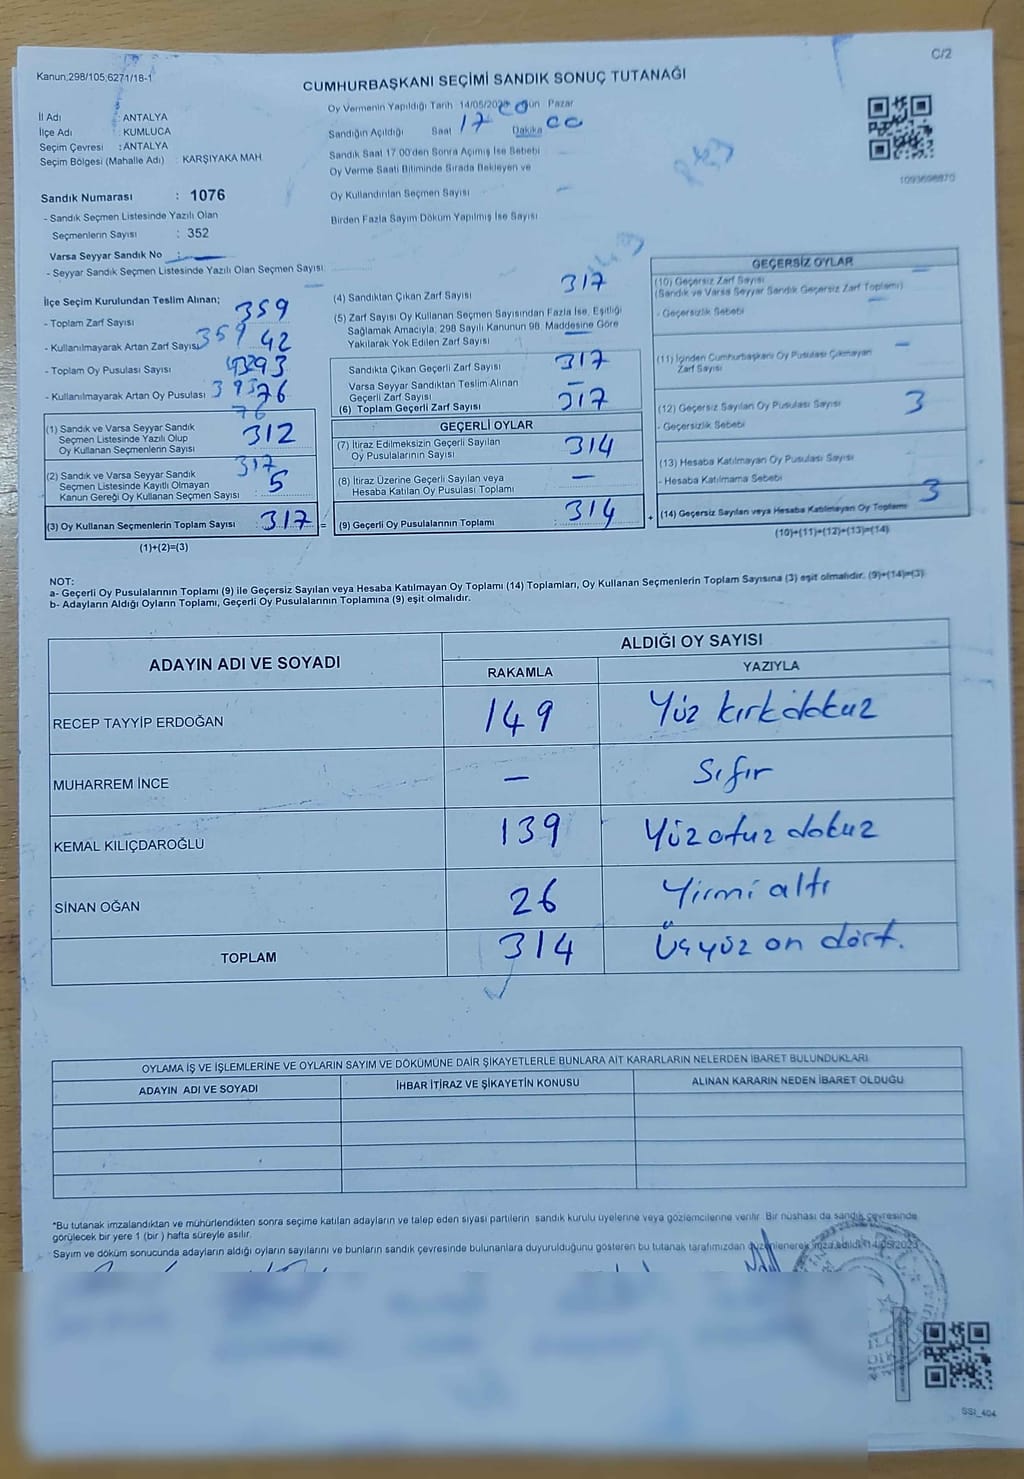 Kanun;298/105,6271/18-1
C/2
CUMHURBAŞKANI SEÇİMİ SANDIK SONUÇ TUTANAĞI
İl Adı : ANTALYA
İlçe Adı : KUMLUCA
Seçim Çevresi : ANTALYA
Seçim Bölgesi (Mahalle Adı) : KARŞIYAKA MAH.
Oy Vermenin Yapıldığı Tarih 14/05/2023 Gün Pazar
Sandığın Açıldığı Saat 17 Dakika 00
Sandık Saat 17:00'den Sonra Açılmış İse Sebebi
Oy Verme Saati Bitiminde Sırada Bekleyen ve
Oy Kullandırılan Seçmen Sayısı
Birden Fazla Sayım Döküm Yapılmış İse Sayısı
1093698870
Sandık Numarası : 1076
- Sandık Seçmen Listesinde Yazılı Olan
Seçmenlerin Sayısı : 352
Varsa Seyyar Sandık No :
- Seyyar Sandık Seçmen Listesinde Yazılı Olan Seçmen Sayısı
İlçe Seçim Kurulundan Teslim Alınan;
- Toplam Zarf Sayısı 359
- Kullanılmayarak Artan Zarf Sayısı 359 42
- Toplam Oy Pusulası Sayısı 393
- Kullanılmayarak Artan Oy Pusulası 76
76
(1) Sandık ve Varsa Seyyar Sandık
Seçmen Listesinde Yazılı Olup
Oy Kullanan Seçmenlerin Sayısı 312
317
(2) Sandık ve Varsa Seyyar Sandık
Seçmen Listesinde Kayıtlı Olmayan
Kanun Gereği Oy Kullanan Seçmen Sayısı 5
(3) Oy Kullanan Seçmenlerin Toplam Sayısı 317 =
(1)+(2)=(3)
(4) Sandıktan Çıkan Zarf Sayısı 317
(5) Zarf Sayısı Oy Kullanan Seçmen Sayısından Fazla İse, Eşitliği
Sağlamak Amacıyla; 298 Sayılı Kanunun 98. Maddesine Göre
Yakılarak Yok Edilen Zarf Sayısı
Sandıkta Çıkan Geçerli Zarf Sayısı 317
Varsa Seyyar Sandıktan Teslim Alınan
Geçerli Zarf Sayısı –
(6) Toplam Geçerli Zarf Sayısı 317
GEÇERLİ OYLAR
(7) İtiraz Edilmeksizin Geçerli Sayılan
Oy Pusulalarının Sayısı 314
(8) İtiraz Üzerine Geçerli Sayılan veya
Hesaba Katılan Oy Pusulası Toplamı –
(9) Geçerli Oy Pusulalarının Toplamı 314 +
GEÇERSİZ OYLAR
(10) Geçersiz Zarf Sayısı
(Sandık ve Varsa Seyyar Sandık Geçersiz Zarf Toplamı)
- Geçersizlik Sebebi
(11) İçinden Cumhurbaşkanı Oy Pusulası Çıkmayan
Zarf Sayısı –
(12) Geçersiz Sayılan Oy Pusulası Sayısı 3
- Geçersizlik Sebebi
(13) Hesaba Katılmayan Oy Pusulası Sayısı
- Hesaba Katılmama Sebebi
(14) Geçersiz Sayılan veya Hesaba Katılmayan Oy Toplamı 3
(10)+(11)+(12)+(13)=(14)
NOT:
a- Geçerli Oy Pusulalarının Toplamı (9) ile Geçersiz Sayılan veya Hesaba Katılmayan Oy Toplamı (14) Toplamları, Oy Kullanan Seçmenlerin Toplam Sayısına (3) eşit olmalıdır. (9)+(14)=(3)
b- Adayların Aldığı Oyların Toplamı, Geçerli Oy Pusulalarının Toplamına (9) eşit olmalıdır.
ADAYIN ADI VE SOYADI
ALDIĞI OY SAYISI
RAKAMLA YAZIYLA
RECEP TAYYİP ERDOĞAN 149 Yüz kırkdokuz
MUHARREM İNCE – Sıfır
KEMAL KILIÇDAROĞLU 139 Yüz otuz dokuz
SİNAN OĞAN 26 Yirmi altı
TOPLAM 314 Üçyüz on dört.
OYLAMA İŞ VE İŞLEMLERİNE VE OYLARIN SAYIM VE DÖKÜMÜNE DAİR ŞİKAYETLERLE BUNLARA AİT KARARLARIN NELERDEN İBARET BULUNDUKLARI
ADAYIN ADI VE SOYADI İHBAR İTİRAZ VE ŞİKAYETİN KONUSU ALINAN KARARIN NEDEN İBARET OLDUĞU
*Bu tutanak imzalandıktan ve mühürlendikten sonra seçime katılan adayların ve talep eden siyasi partilerin sandık kurulu üyelerine veya gözlemcilerine verilir. Bir nüshası da sandık çevresinde
görülecek bir yere 1 (bir) hafta süreyle asılır.
Sayım ve döküm sonucunda adayların aldığı oyların sayılarını ve bunların sandık çevresinde bulunanlara duyurulduğunu gösteren bu tutanak tarafımızdan düzenlenerek imza edildi. 14/05/2023
SSI_404